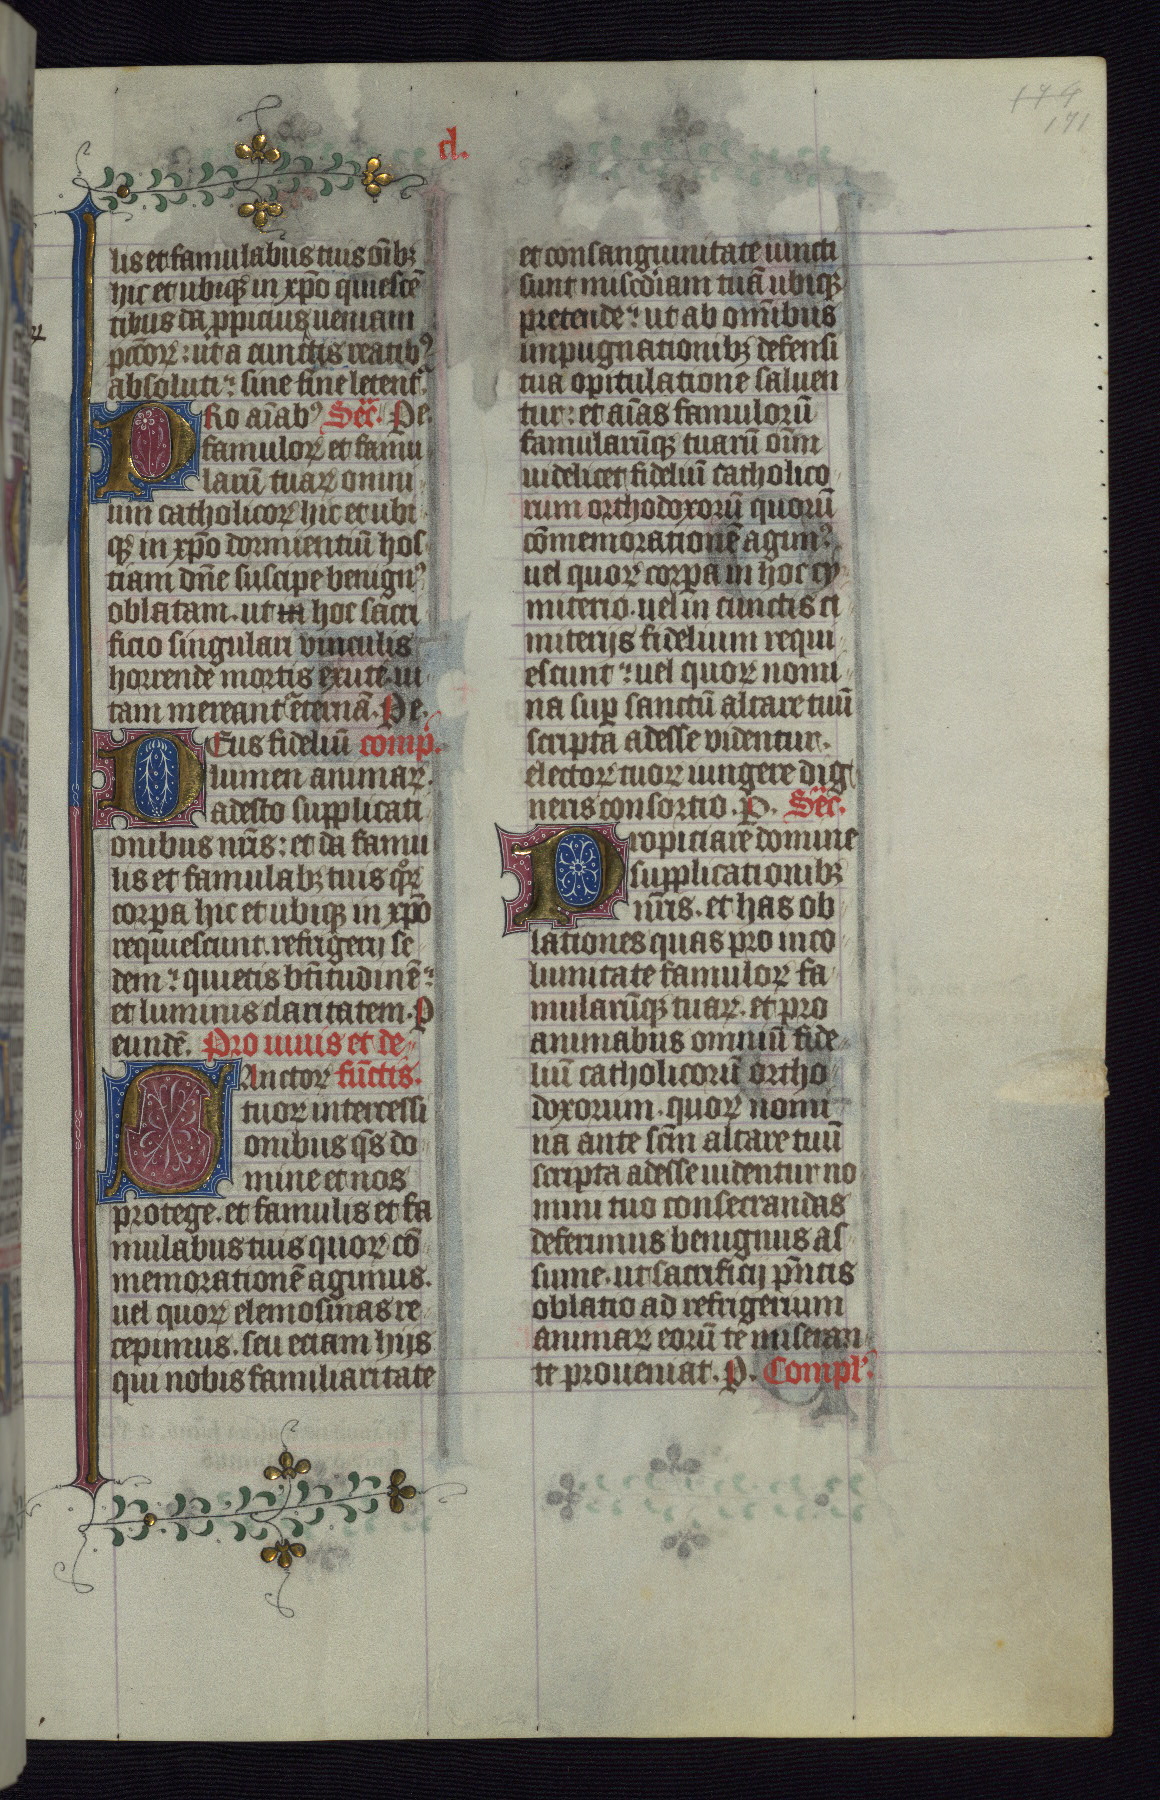 174
171
d.
lis et famulabus tuis oib⁊
hic et ubiqꝫ in xp̄o quiescē
tibus da ꝓpicius ueniam
pctōrꝝ: ut a cunctis reatibꝰ
absoluti: sine fine letentᷣ.
PRo aīabꝰ Sēc. Pe.
famuloꝝ et famu
larū tuaꝝ omni
um catholicoꝝ hic et ubi
qꝫ in xp̄o dormientiū hos
tiam dn̄e suscipe benignꝰ
oblatam. ut in hoc sacri
ficio singulari vinculis
horrende mortis exute. ui
tam mereantᷣ eternā. Pe.
DEus fideliū comp̄.
lumen animaꝝ.
adesto supplicati
onibus nr̄is: et da famu
lis et famulabꝫ tuis qͦꝝ
corpa hic et ubiqꝫ in xp̄o
requiescunt. refrigerij se
dem: quietis bt̄itudinē:
et luminis claritatem. P
eundē. Pro uiuis et de
SAnctoꝝ fūctis.
tuoꝝ intercessi
onibus qs̄ do
mine et nos
protege. et famulis et fa
mulabus tuis quoꝝ cō
memorationē agimus.
uel quoꝝ elemosinas re
cepimus. seu eciam hijs
qui nobis familiaritate
et consanguinitate iuncti
sunt mis̄cdiam tuā ubiqꝫ
pretende: ut ab omnibus
inpugnationibꝫ defensi
tua opitulatione saluen
tur: et aīas famulorū
famularūqꝫ tuarū oīm
uidelicet fideliū catholico
rum orthodoxorū quorū
cōmemorationē agimꝰ.
uel quoꝝ corpa in hoc cy
miterio. uel in cunctis ci
miterijs fidelium requi
escunt: uel quoꝝ nomi
na suꝑ sanctū altare tuū
scripta adesse videntur.
electoꝝ tuoꝝ iungere dig
neris consortio. P. Sēc.
Propiciare domine
supplicationibꝫ
nr̄is. et has ob
lationes quas pro inco
lumitate famuloꝝ fa
mularūqꝫ tuaꝝ. et pro
animabus omniū fide
liū catholicorū ortho
doxorum. quoꝝ nomi
na ante scm̄ altare tuū
scripta adesse uidentur no
mini tuo consecrandas
deferimus benignus as
sume. ut sacrificij pn̄tis
oblatio ad refrigerium
animaꝝ eorū te miseran
te proueniat. P. Compl̄.